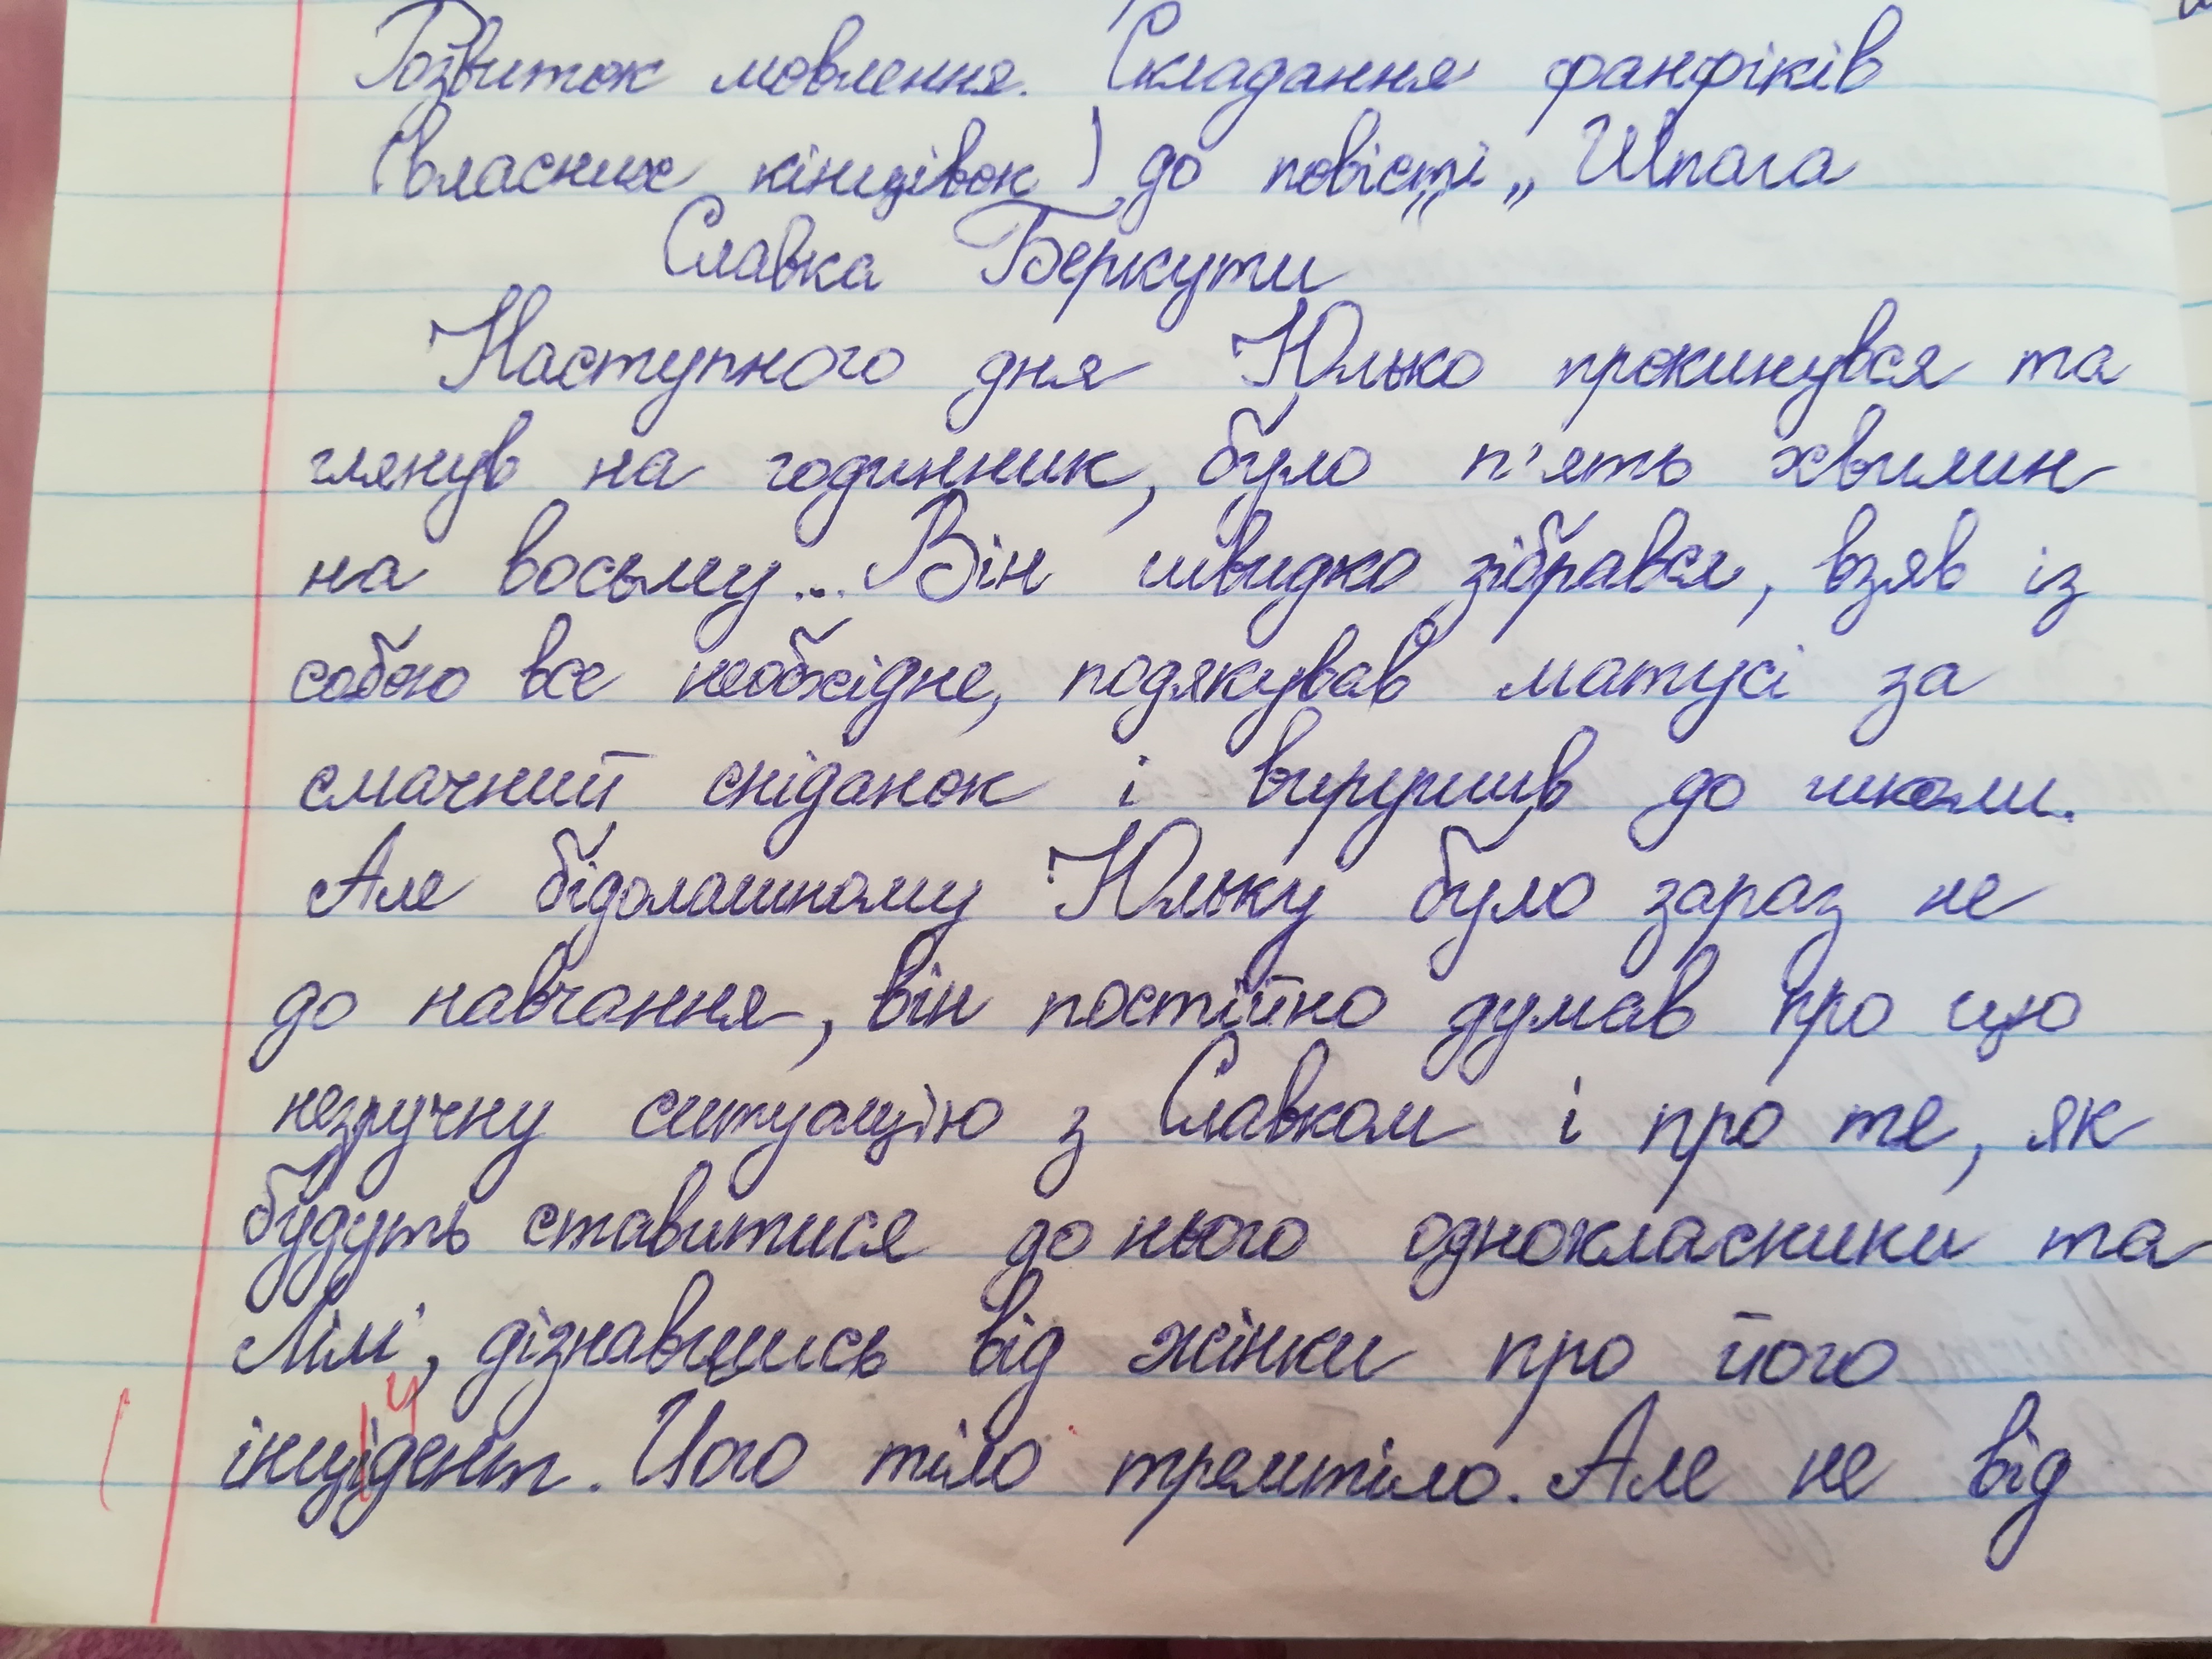 Розвиток мовлення. Складання фанфіків
(власних кінцівок) до повісті „Шпага
Славка Беркути“
Наступного дня Юлько прокинувся та
глянув на годинник, було п'ять хвилин
на восьму... Він швидко зібрався, взяв із
собою все необхідне, подякував матусі за
смачний сніданок і вирушив до школи.
Але бідолашному Юльку було зараз не
до навчання, він постійно думав про цю
незручну ситуацію з Славком і про те, як
будуть ставитися до нього однокласники та
Лілі, дізнавшись від жінки про його
інцідент. Його тіло тремтіло. Але не від
и